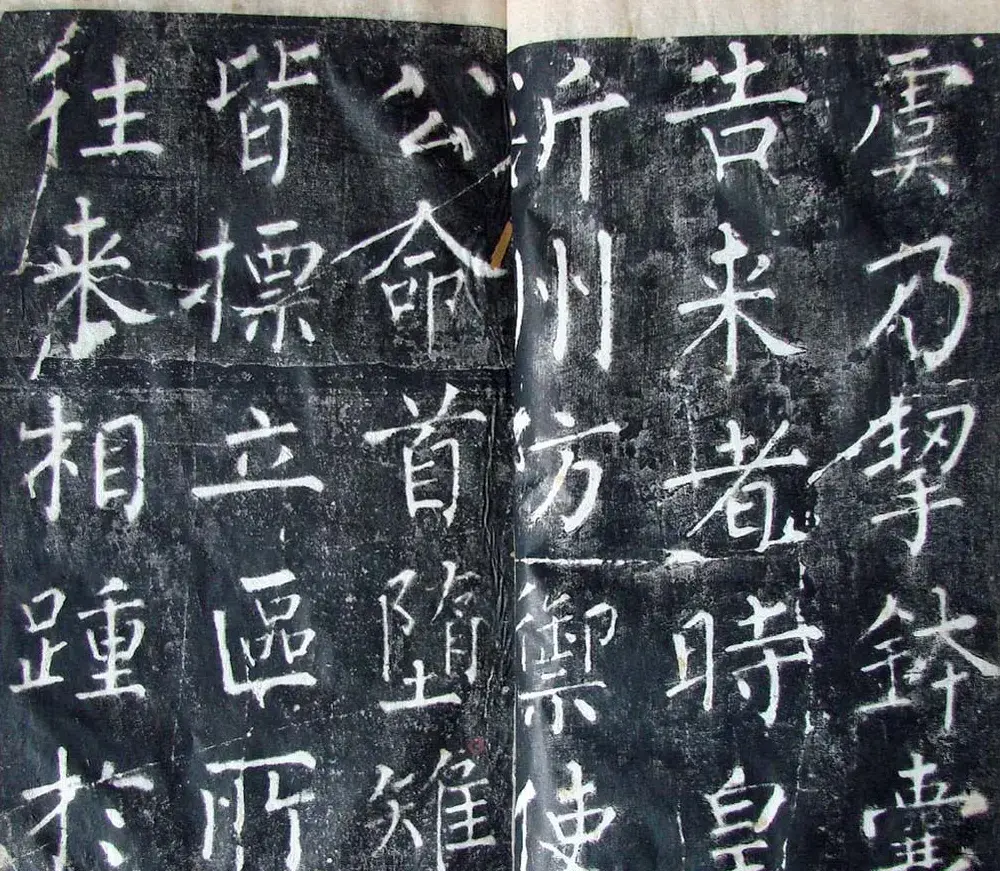 虞乃挈鉢囊
告来者時皇
沂州防禦使
公命首墮雉
皆標立區所
往来相踵於